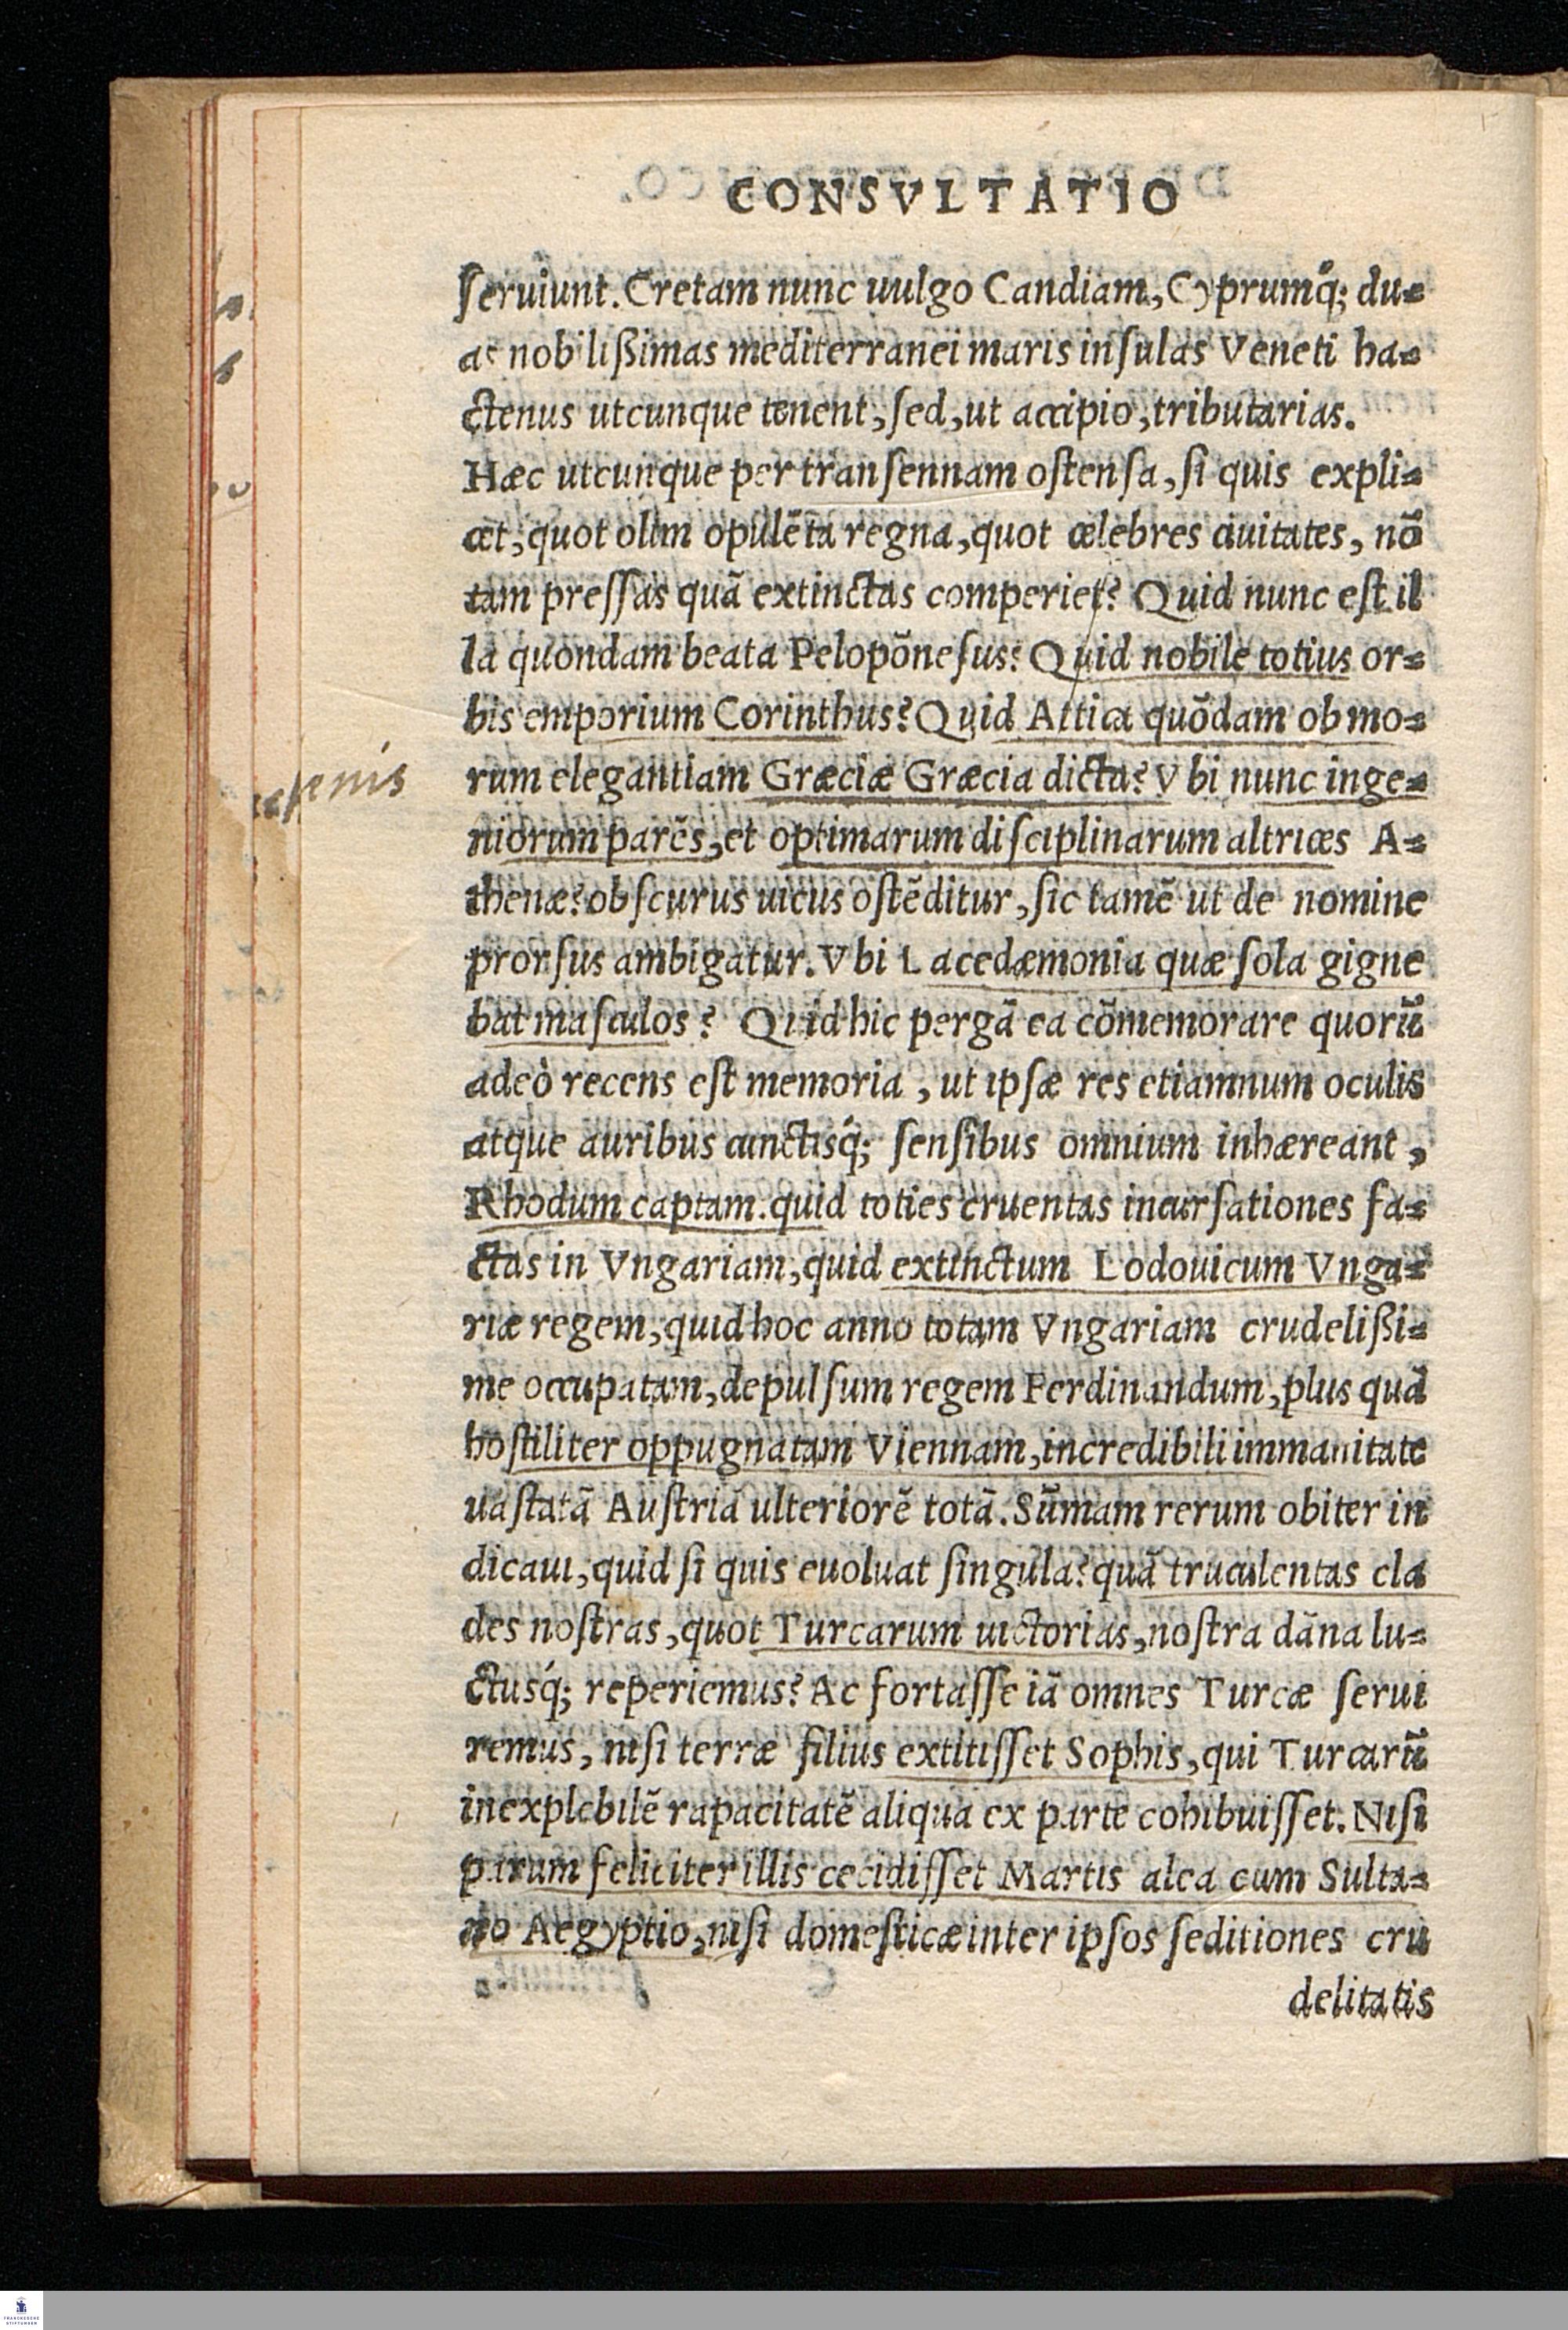 CONSVLTATIO
ſeruiunt. Cretam nunc uulgo Candiam, Cyprumq́; du=
as nobilißimas mediterranei maris inſulas Veneti ha=
ctenus utcunque tenent, ſed, ut accipio, tributarias.
Hæc utcunque per tranſennam oſtenſa, ſi quis expli=
cet, quot olim opulẽta regna, quot celebres ciuitates, nõ
tam preſſas quã extinctas comperiet? Quid nunc eſt il
la quondam beata Pelopõneſus? Quid nobile totius or=
bis emporium Corinthus? Quid Attica quõdam ob mo=
rum elegantiam Græciæ Græcia dicta? Vbi nunc inge=
niorum parẽs, et optimarum diſciplinarum altrices A=
thenæ? obſcurus uicus oſtẽditur, ſic tamẽ ut de nomine
prorſus ambigatur. Vbi Lacedæmonia quæ ſola gigne
bat maſculos? Quid hic pergã ea cõmemorare quorũ
adeò recens eſt memoria, ut ipſæ res etiamnum oculis
atque auribus cunctisq́; ſenſibus omnium inhæreant,
Rhodum captam. quid toties cruentas incurſationes fa=
ctas in Vngariam, quid extinctum Lodouicum Vnga=
riæ regem, quid hoc anno totam Vngariam crudelißi=
me occupatam, depulſum regem Ferdinandum, plus quã
hoſtiliter oppugnatam Viennam, incredibili immanitate
uaſtatã Auſtriã ulteriorẽ totã. Sũmam rerum obiter in
dicaui, quid ſi quis euoluat ſingula? quã truculentas cla
des noſtras, quot Turcarum uictorias, noſtra dãna lu=
ctusq́; reperiemus? Ac fortaſſe iã omnes Turcæ ſerui
remus, niſi terræ filius extitiſſet Sophis, qui Turcarũ
inexplebilẽ rapacitatẽ aliqua ex parte cohibuiſſet. Niſi
parum feliciter illis cecidiſſet Martis alea cum Sulta=
no Aegyptio, niſi domeſticæ inter ipſos ſeditiones cru
delitatis
FRANCKESCHE
STIFTUNGEN